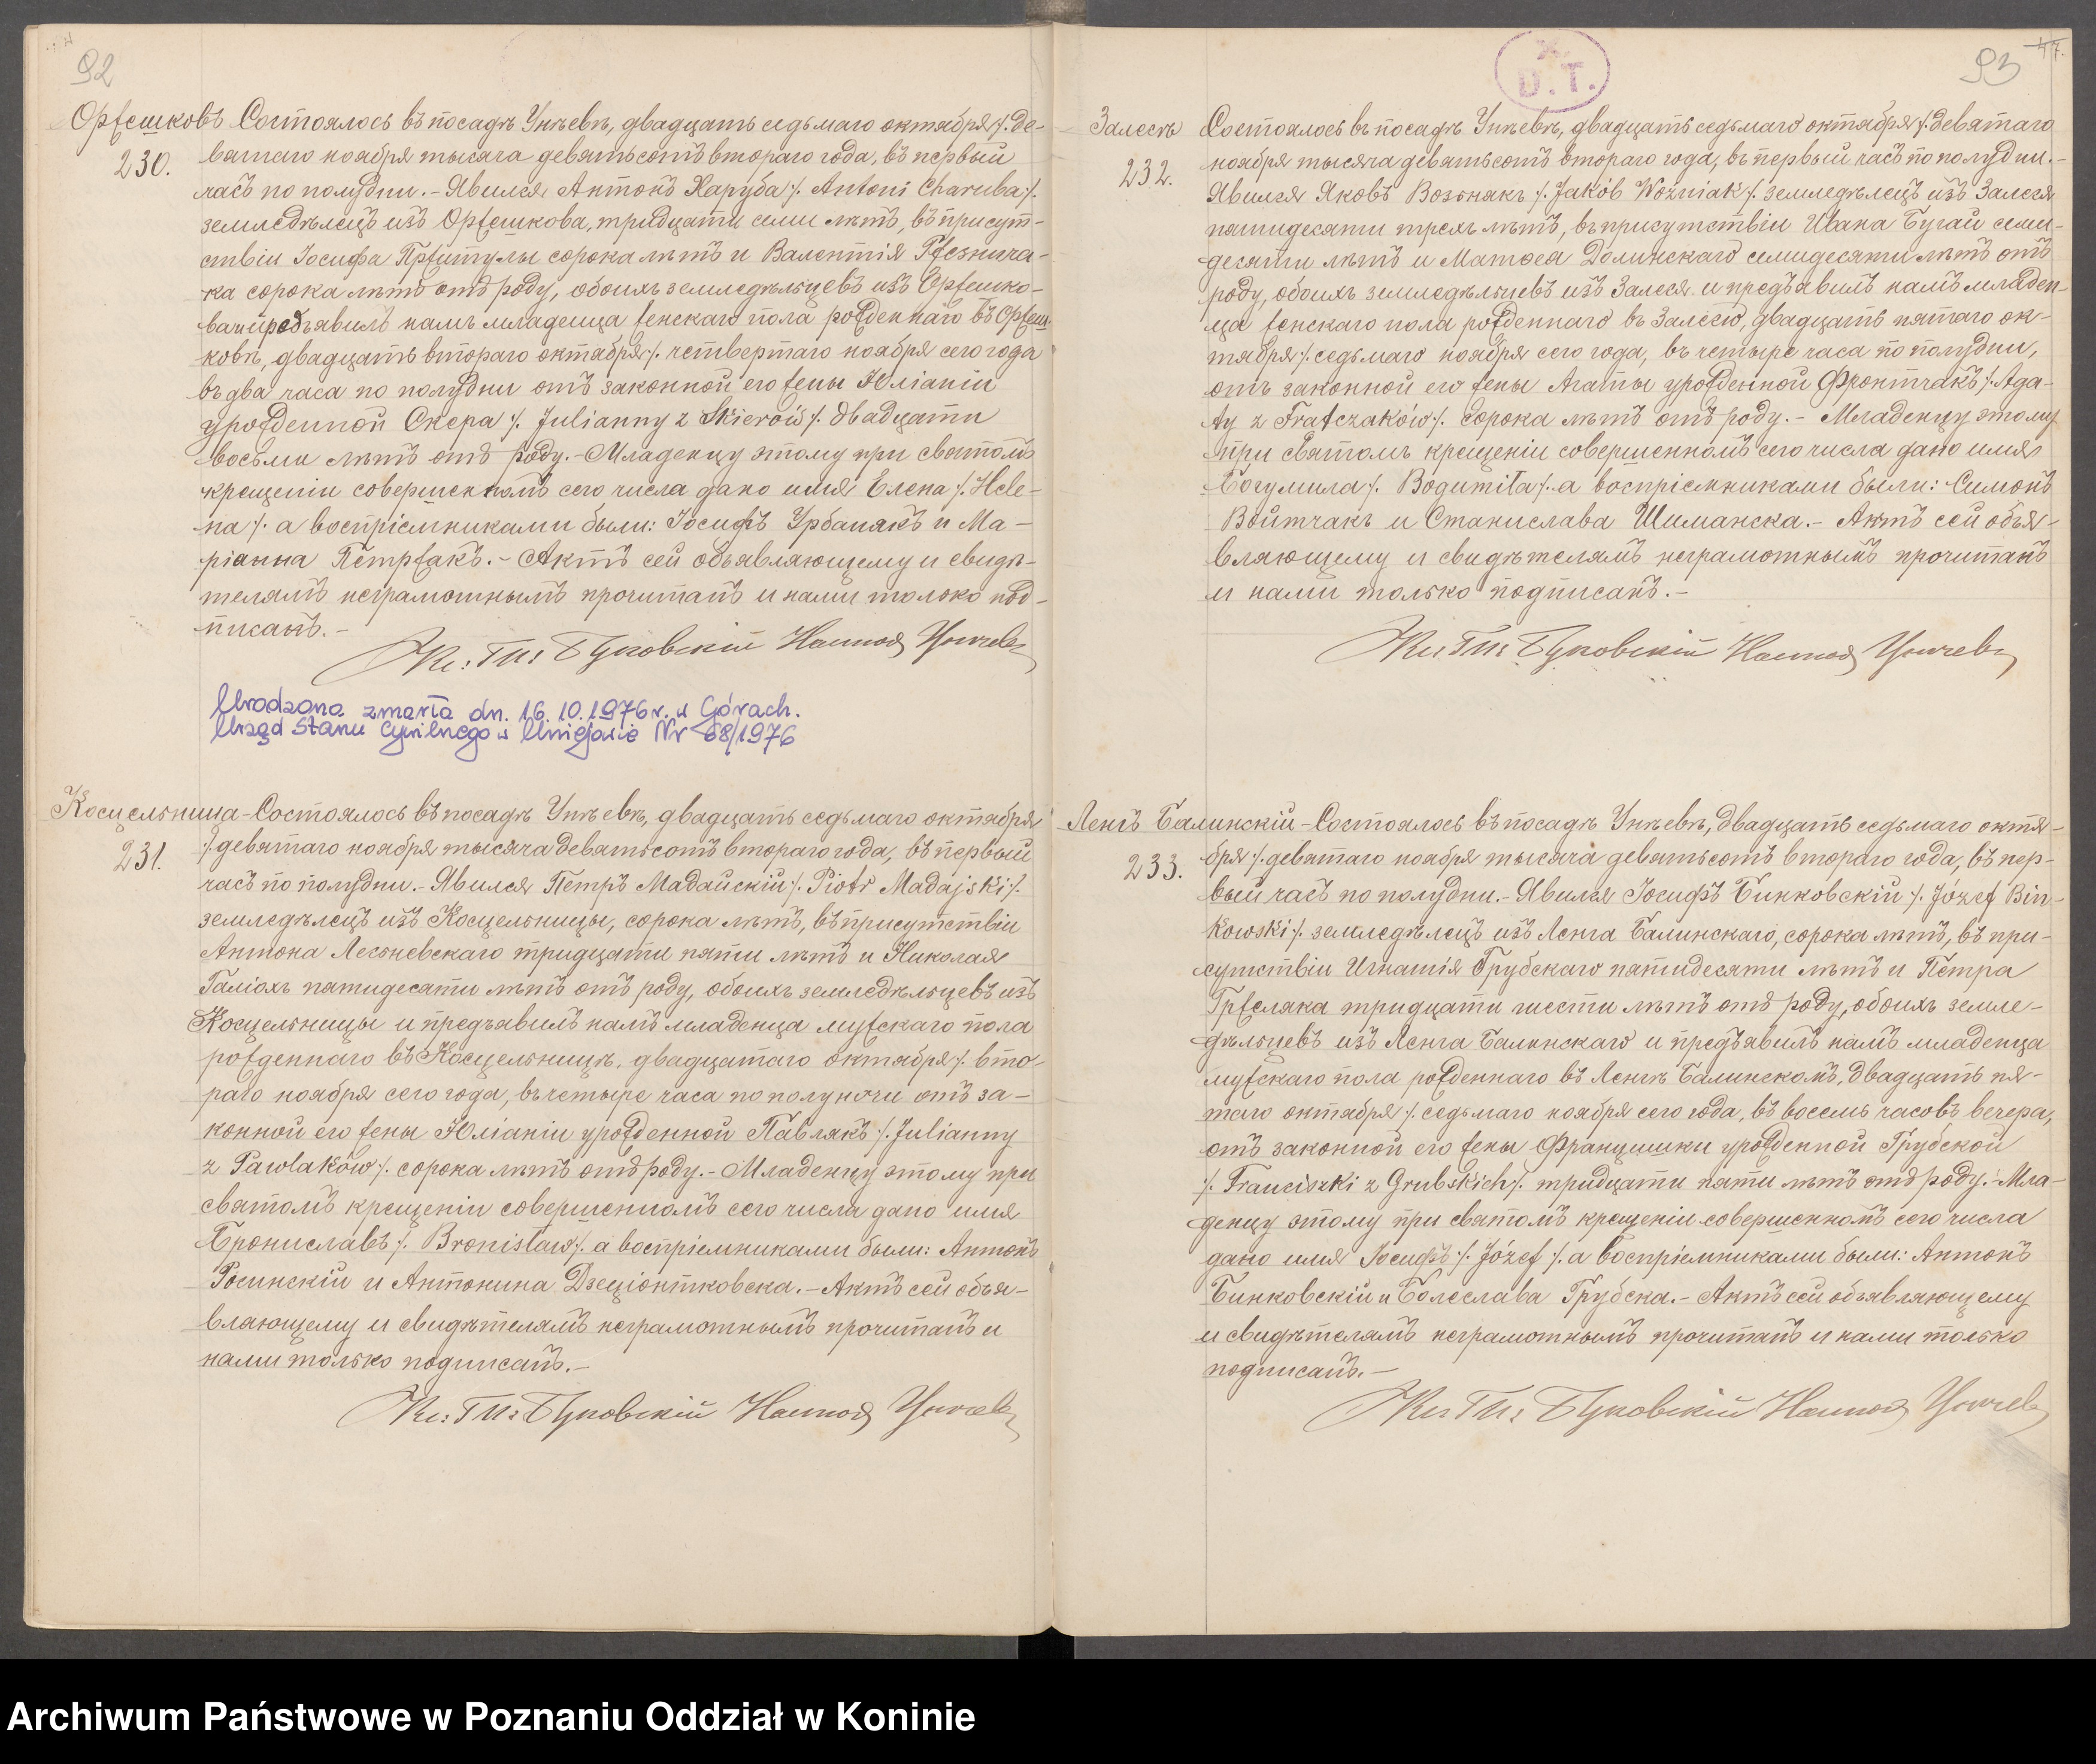 92
Оржешковъ Состоялось въ посадѣ Унѣевѣ, двадцать седьмаго октября /. де-
230. вятаго ноября тысяча девятьсотъ втораго года, въ первый
часъ по полудни. - Явился Антонъ Харуба /. Antoni Charuba /.
земледѣлецъ изъ Оржешкова, тридцати семи лѣтъ, въ присут-
ствіи Іосифа Пржитулы сорока лѣтъ и Валентія
ка сорока лѣтъ отъ роду, обоихъ земледѣльцевъ изъ Оржешко-
ва и предъявилъ намъ младенца женскаго пола рожденнаго въ Оржеш-
ковѣ, двадцать втораго октября /. четвертаго ноября сего года
въ два часа по полудни отъ законной его жены Юліаніи
урожденной Скера /. Julianny z Skierów /. двадцати
восьми лѣтъ отъ роду. - Младенцу этому при святомъ
крещеніи совершенномъ сего числа дано имя Елена /. Hele-
na /. а воспріемниками были: Іосифъ Урбанякъ и Ма-
ріанна Петржакъ. - Актъ сей объявляющему и свидѣ-
телямъ неграмотнымъ прочитанъ и нами только под-
писанъ. -
Кс: Буковскій
Urodzona zmarła dn. 16.10.1976 r. w Górach.
Urząd Stanu Cywilnego w Uniejowie Nr 68/1976
Косцельница - Состоялось въ посадѣ Унѣевѣ, двадцать седьмаго октября
231. /. девятаго ноября тысяча девятьсотъ втораго года, въ первый
часъ по полудни. - Явился Петръ Мадайскій /. Piotr Madajski /.
земледѣлецъ изъ Косцельницы, сорока лѣтъ, въ присутствіи
Антона Лесьневскаго тридцати пяти лѣтъ и Николая
Галіохъ пятидесяти лѣтъ отъ роду, обоихъ земледѣльцевъ изъ
Косцельницы и предъявилъ намъ младенца мужскаго пола
рожденнаго въ Косцельницѣ, двадцатаго октября /. вто-
раго ноября сего года, въ четыре часа по полуночи отъ за-
конной его жены Юліаніи урожденной Павлякъ /. Julianny
z Pawlaków /. сорока лѣтъ отъ роду. - Младенцу этому при
святомъ крещеніи совершенномъ сего числа дано имя
Брониславъ /. Bronisław /. а воспріемниками были: Антонъ
Росинскій и Антонина Дзеціонтковска. - Актъ сей объя-
вляющему и свидѣтелямъ неграмотнымъ прочитанъ и
нами только подписанъ. -
Кс: Буковскій
93 47.
D. T.
Залесѣ Состоялось въ посадѣ Унѣевѣ, двадцать седьмаго октября /. девятаго
232. ноября тысяча девятьсотъ втораго года, въ первый часъ по полудни. -
Явился Яковъ Возьнякъ /. Jakób Woźniak /. земледѣлецъ изъ Залеся
пятидесяти трехъ лѣтъ, въ присутствіи Ивана Бугай семи-
десяти лѣтъ и Матѳея Долинскаго семидесяти лѣтъ отъ
роду, обоихъ земледѣльцевъ изъ Залеся и предъявилъ намъ младен-
ца женскаго пола рожденнаго въ Залесю, двадцать пятаго ок-
тября /. седьмаго ноября сего года, въ четыре часа по полудни,
отъ законной его жены Агаты урожденной Фронтчакъ /. Aga-
ty z Fratczaków /. сорока лѣтъ отъ роду. - Младенцу этому
при святомъ крещеніи совершенномъ сего числа дано имя
Богумила /. Bogumiła /. а воспріемниками были: Симонъ
Войтчакъ и Станислава Шиманска. - Актъ сей объя-
вляющему и свидѣтелямъ неграмотнымъ прочитанъ
и нами только подписанъ. -
Кс: Буковскій
Ленгъ Балинскій - Состоялось въ посадѣ Унѣевѣ, двадцать седьмаго октя-
233. бря /. девятаго ноября тысяча девятьсотъ втораго года, въ пер-
вый часъ по полудни. - Явился Іосифъ Бинковскій /. Józef Bin-
kowski /. земледѣлецъ изъ Ленга Балинскаго, сорока лѣтъ, въ при-
сутствіи Игнатія Грубскаго пятидесяти лѣтъ и Петра
Гржеляка тридцати шести лѣтъ отъ роду, обоихъ земле-
дѣльцевъ изъ Ленга Балинскаго и предъявилъ намъ младенца
мужскаго пола рожденнаго въ Ленгѣ Балинскомъ, двадцать пя-
таго октября /. седьмаго ноября сего года, въ восемь часовъ вечера,
отъ законной его жены Францишки урожденной Грубской
/. Franciszki z Grubskich /. тридцати пяти лѣтъ отъ роду. - Мла-
денцу этому при святомъ крещеніи совершенномъ сего числа
дано имя Іосифъ /. Józef /. а воспріемниками были: Антонъ
Бинковскій и Болеслава Грубска. - Актъ сей объявляющему
и свидѣтелямъ неграмотнымъ прочитанъ и нами только
подписанъ. -
Кс: Буковскій
Archiwum Państwowe w Poznaniu Oddział w Koninie